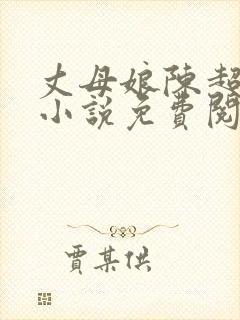 丈母娘陈超
小说免費閱
賈某供